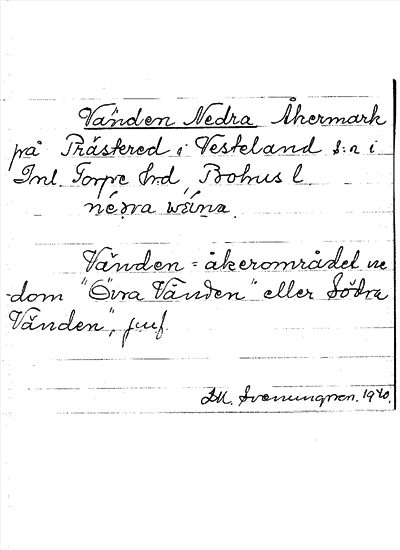 Vänden Nedra Åkermark
på Prästered i Vesteland s:n i
Inl. Torpe hrd, Bohus l.
Vänden = åkerområdet ne
-dom "Övra Vänden" eller Södra
Vänden", jmf.
Svenningsson. 1940.